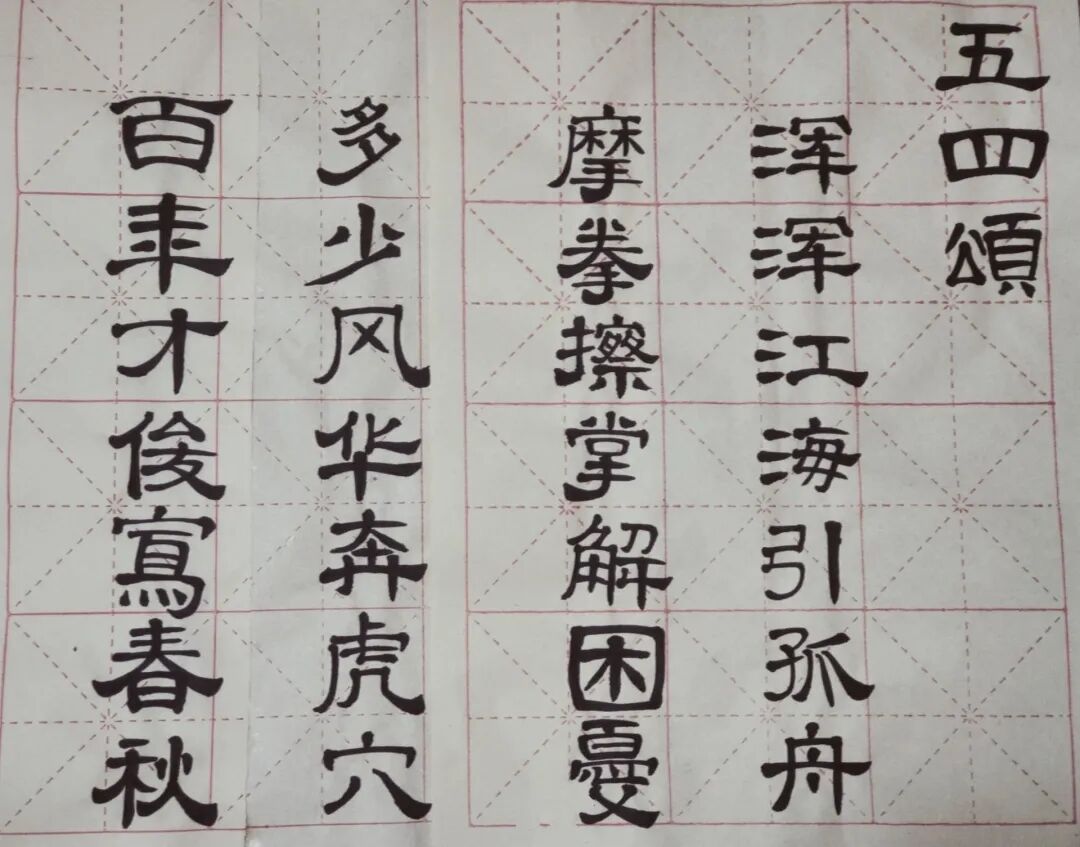 五四頌
浑浑江海引孤舟
摩拳擦掌解困憂
多少风华奔虎穴
百年才俊寫春秋